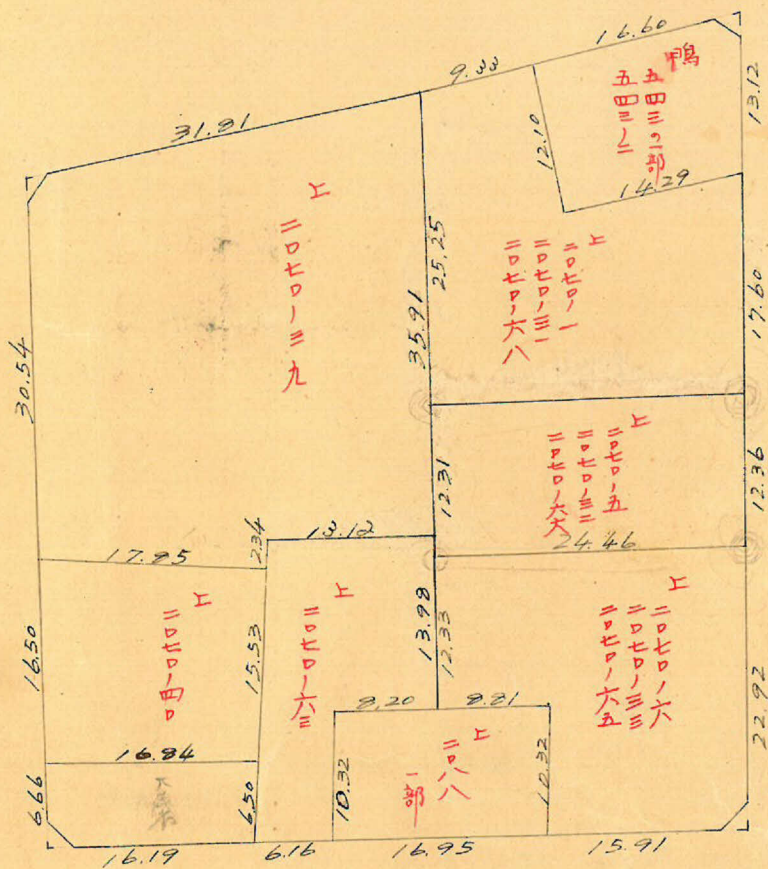 16.60
9.33
鴨
五四三ノ一部
五四三ノ二
13.12
31.81
12.10
14.29
上
二〇七〇ノ三九
25.25
35.91
上
二〇七〇ノ一
二〇七〇ノ三一
二〇七〇ノ六八
17.60
30.54
上
二〇七〇ノ五
二〇七〇ノ三二
二〇七〇ノ六六
12.31
12.36
24.46
13.12
2.34
17.95
上
二〇七〇ノ四〇
16.50
15.53
上
二〇七〇ノ六三
13.98
12.33
上
二〇七〇ノ六
二〇七〇ノ三三
二〇七〇ノ六五
22.92
8.20
8.81
上
二〇八八
一部
10.32
10.32
16.84
6.66
6.50
16.19
6.16
16.95
15.91